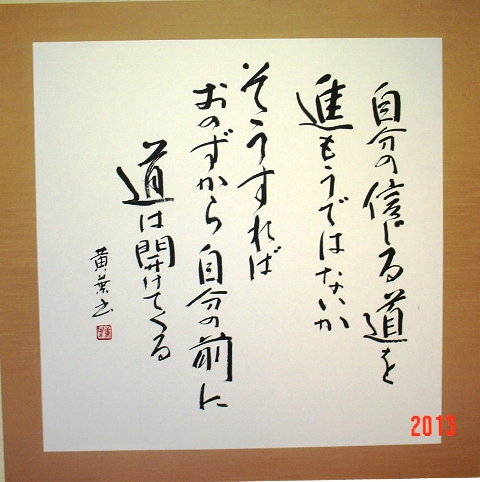 自分の信じる道を
進もうではないか
そうすれば
おのずから自分の前に
道は開けてくる
黄葉書
2013